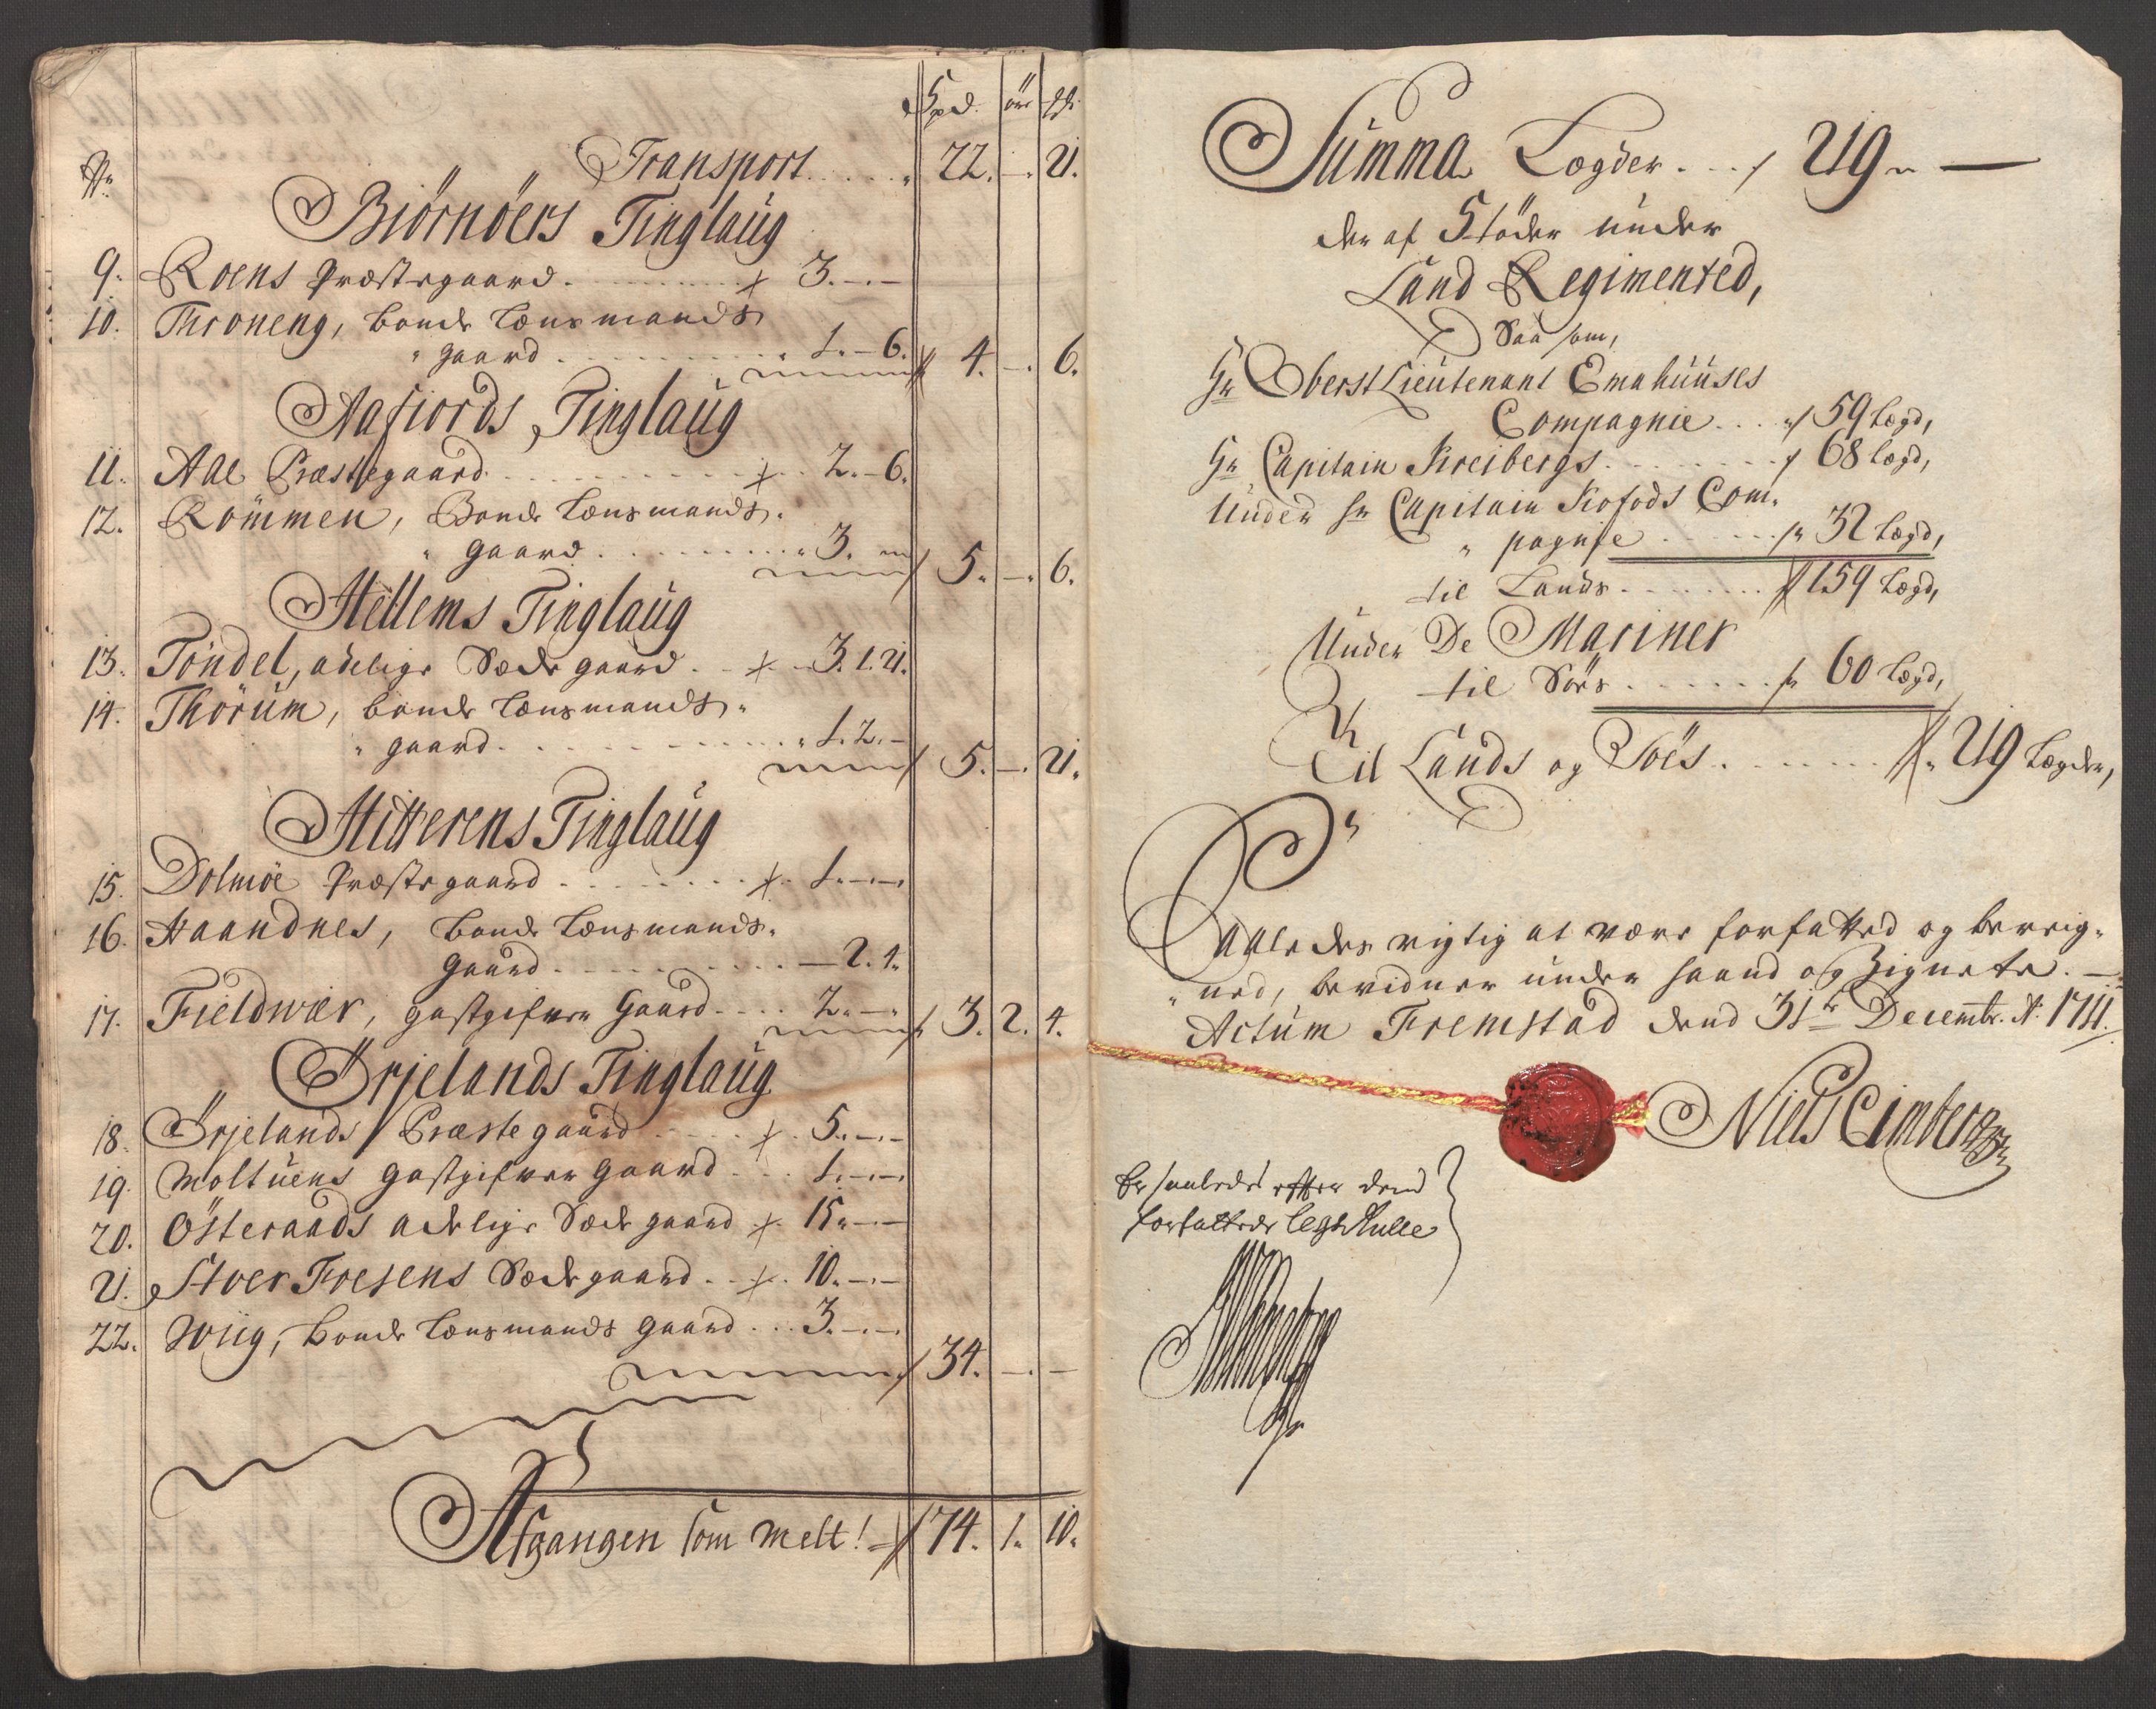 Spd. øre
No Transport . . . . . 22. –. 21.
Biörnöers Tinglaug
9. Roens Præstegaard . . . . . 3. – . –
10. Throneng, bonde Lensmands
gaard . . . . . 1. – 6. 4. – . 6.
Aafiords Tinglaug
11. Aae Præstegaard . . . . . 2. – 6.
12. Römmen, Bonde Lensmands
gaard . . . . . 3. 5. – . 6.
Nellems Tinglaug
13. Töndel, adelige Sæde gaard . . 3. 1. 21.
14. Thörum, bonde Lensmands
gaard . . . . . 1. 2. – 5. – . 21.
Hitterens Tinglaug
15. Dolmöe Præstegaard . . . . . 1. – . –
16. Haandnes, bonde Lensmands
Gaard . . . . . – 2. 4.
17. Fieldwær, gastgifver Gaard . . . . 2. – . – 3. 2. 4.
Örjelands Tinglaug
18. Örjelands Præste gaard . . . . 5. – . –
19. Moltuens gastgifver gaard . . . 1. – . –
20. Österaads adelige Sæde gaard . 15. – . –
21. Stoer Fosens Sædegaard . . . 10. – . –
22. Wiig, bonde Lensmands gaard . . . 3. – . –
34. – . –
Afgangen som melt! 74. 1. 10.
Summa Legder . . . 219 –
der af Støder under
Land Regimented,
Saa som,
Hr Oberst Lieutenant Emahuuses
Compagnie . . . 59 Legd,
Hr Capitain Kreibergs . . . . . 68 Legd,
Under hr Capitain Kofods Com-
pagnie . . . . . 32 Legd,
til Lands . . . . . 159 Legd,
Under De Mariner
til Söes . . . . . 60 Legd,
Til Lands og Söes . . . . . 219 Legder,
Saaledes rigtig at være forfatted og bereig-
ned, bevidner under haand og Zignete. –
Actum Fremstad dend 31te Decembr. Ao. 1711.
Niels Cimber
Er saaledes efter dend
forfattede Legd Rulle